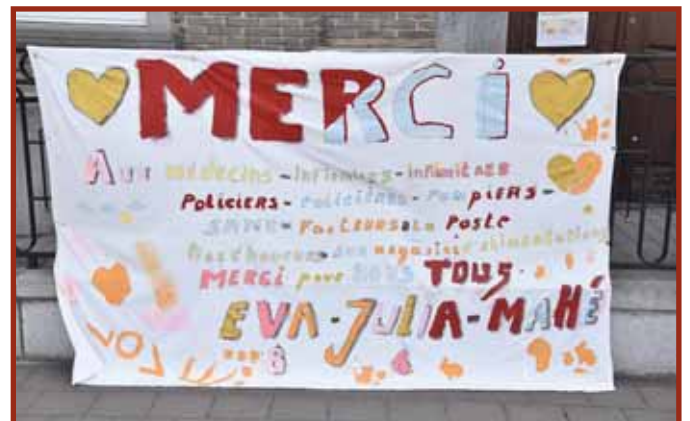 MERCI
Aux médecins - Infirmiers - infirmières
POLICIERS - policières - POMPIERS -
SAMU - FACTEURS La POSTE
des magasins alimentations
MERCI pour VOUS TOUS.
EVA - JULIA - MAHÉ
8 6